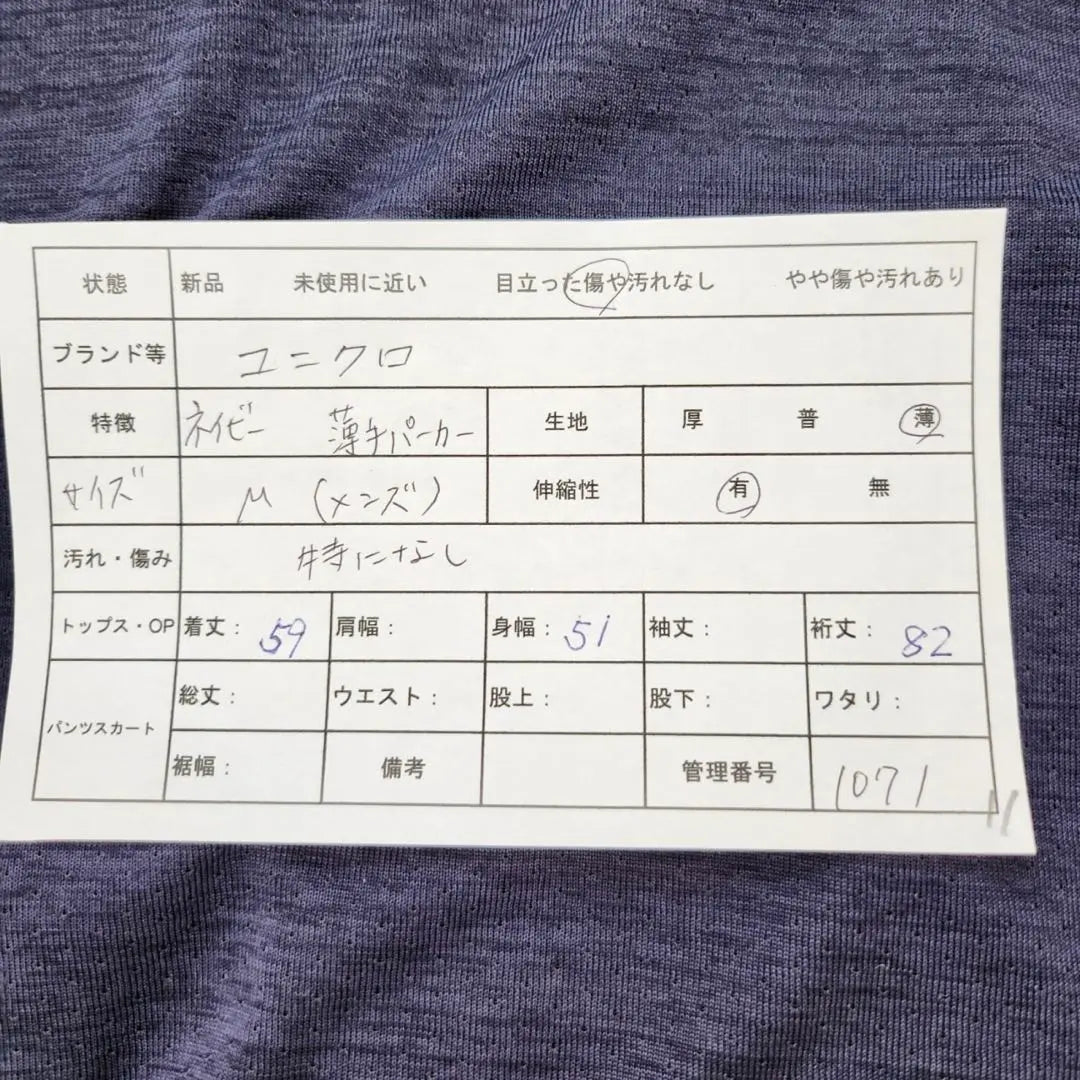 状態 新品 未使用に近い 目立った傷や汚れなし やや傷や汚れあり
ブランド等 ユニクロ
特徴 ネイビー 薄手パーカー 生地 厚 普 薄
サイズ M (メンズ) 伸縮性 有 無
汚れ・傷み 特になし
トップス・OP 着丈: 59 肩幅: 身幅: 51 袖丈: 裄丈: 82
パンツスカート 総丈: ウエスト: 股上: 股下: ワタリ:
裾幅: 備考 管理番号 1071
11